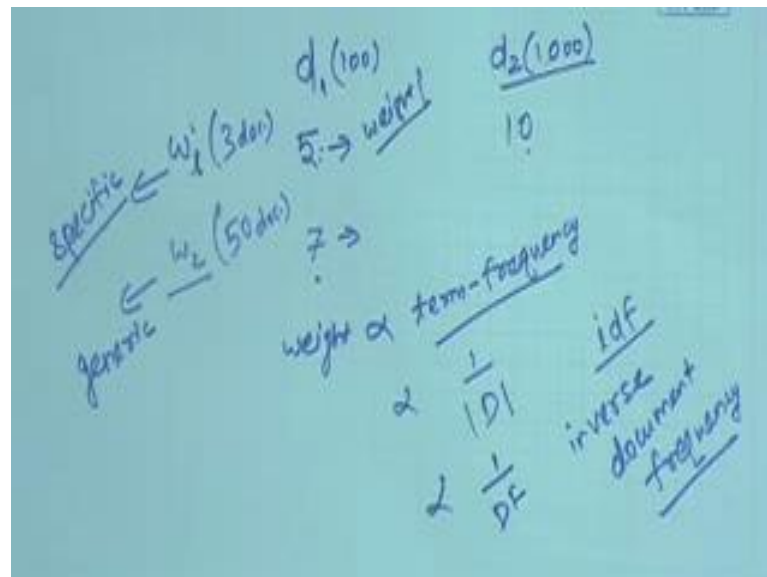 d₁(100) d₂(1000)
specific ← w₁(3 doc.) 5 → weight 10
generic ← w₂ (50 doc.) 7 →
weight α term-frequency
α 1/|D| idf
inverse
document
frequency
α 1/DF